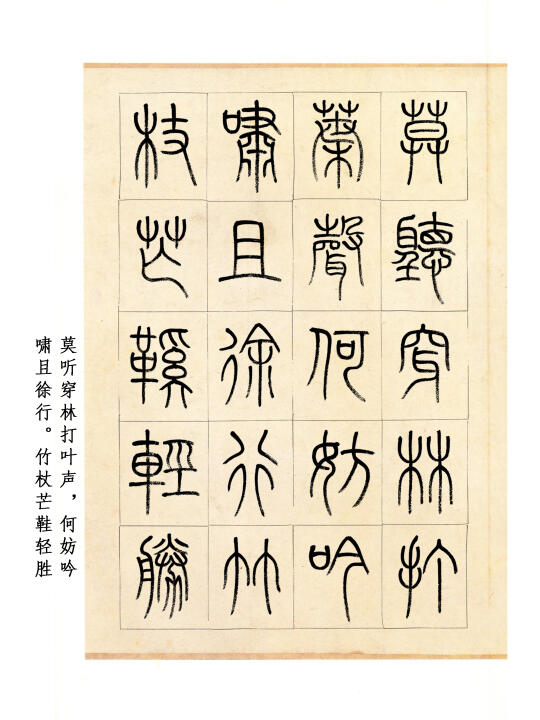 莫聽穿林打
葉聲何妨吟
嘯且徐行竹
杖芒鞵輕勝
莫听穿林打叶声，何妨吟
啸且徐行。竹杖芒鞋轻胜